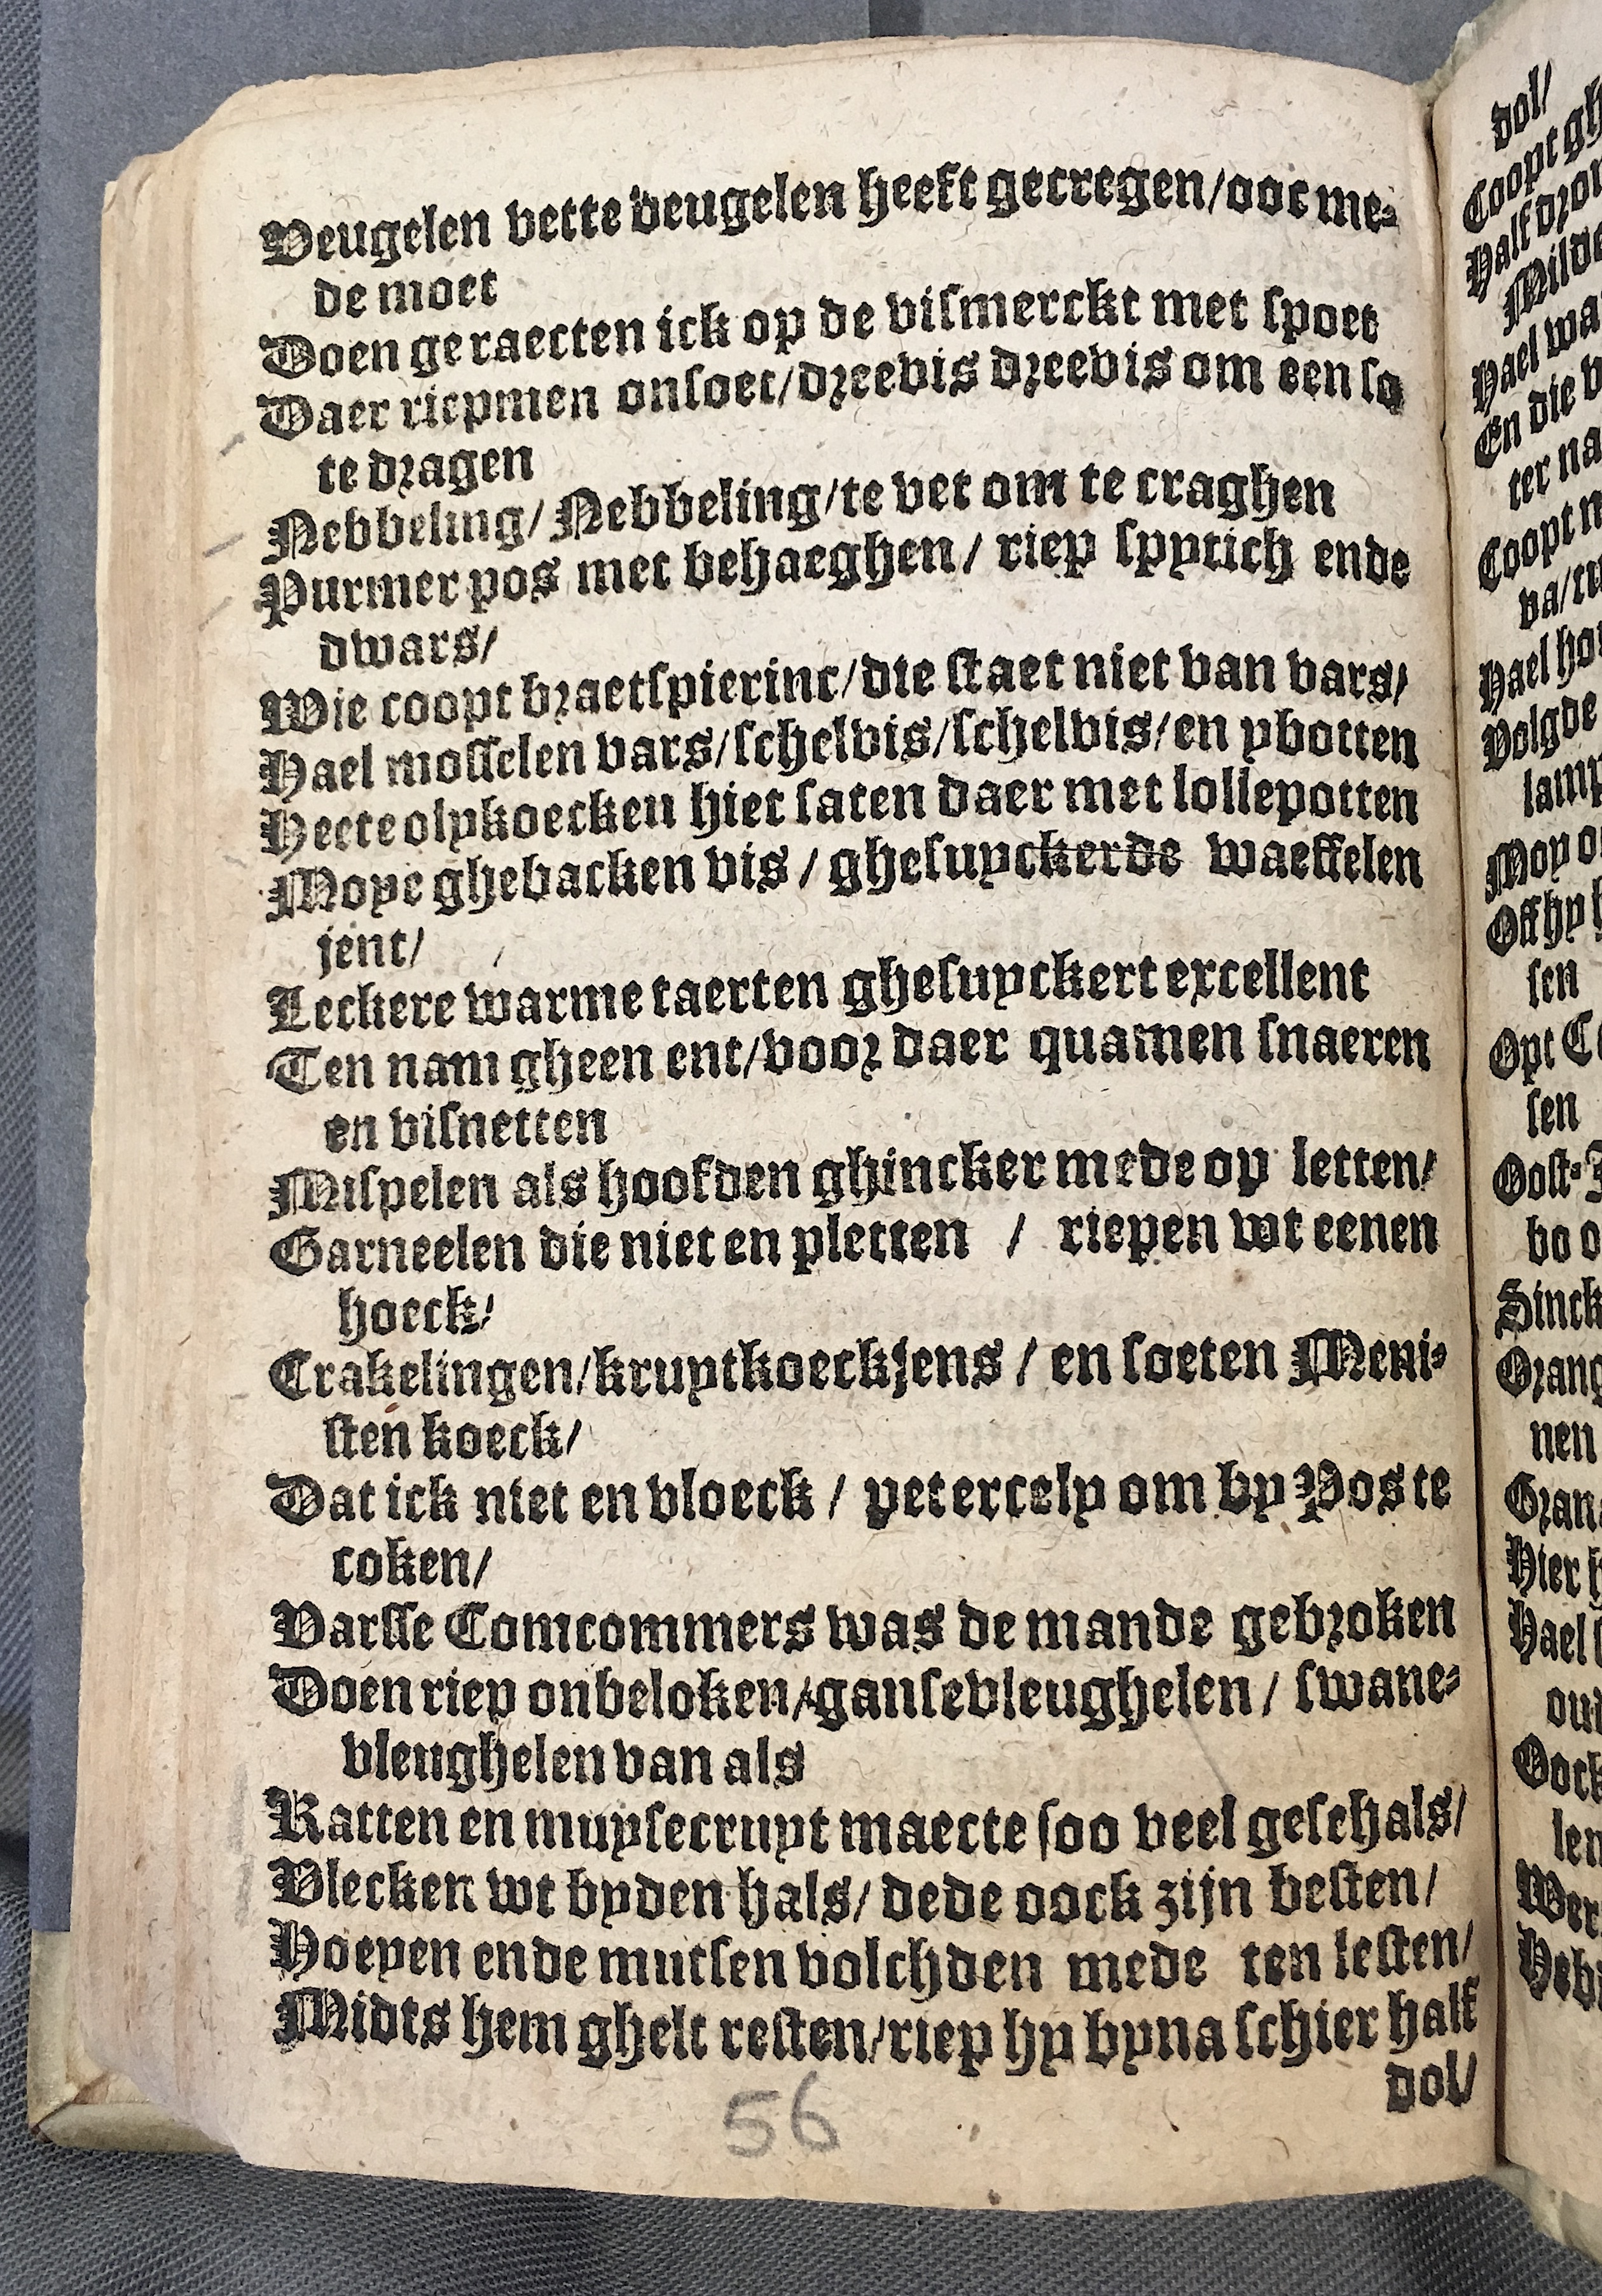 Veugelen vette veugelen heeft gecregen/ooc me-
de moet
Doen geraecten ick op de vismerckt met spoet
Daer riepmen onsoet/dreevis dreevis om een so
te dragen
Nebbeling/Nebbeling/te vet om te craghen
Purmer pos met behaeghen/ riep spytich ende
dwars/
Wie coopt braetspierinc/die staet niet van vars/
Hael mosselen vars/schelvis/schelvis/en ybotten
Heete olykoecken hiet saten daer met lollepotten
Moye ghebacken vis/ghesuyckerde waeffelen
jent/
Leckere warme taerten ghesuyckert excellent
Ten nam gheen ent/voor daer quamen snaeren
en visnetten
Mispelen als hoofden ghincker mede op letten/
Garneelen die niet en pletten / riepen wt eenen
hoeck/
Crakelingen/kruytkoeckjens / en soeten Meni-
sten koeck/
Dat ick niet en vloeck / petercely om by Pos te
coken/
Varsse Comcommers was de mande gebroken
Doen riep onbeloken/gansevleughelen/ swane-
vleughelen van als
Ratten en muysecruyt maecte soo veel geschals/
Vlecken wt byden hals/ dede oock zijn besten/
Hoeyen ende mutsen volchden mede ten lesten/
Midts hem ghelt resten/riep hy byna schier half
dol/
56
dol/
Coopt
Half
Hael
En die
ter
Coopt
Hael
Volgde
Moy
sen
Opt
sen
nen
Hier
Hael